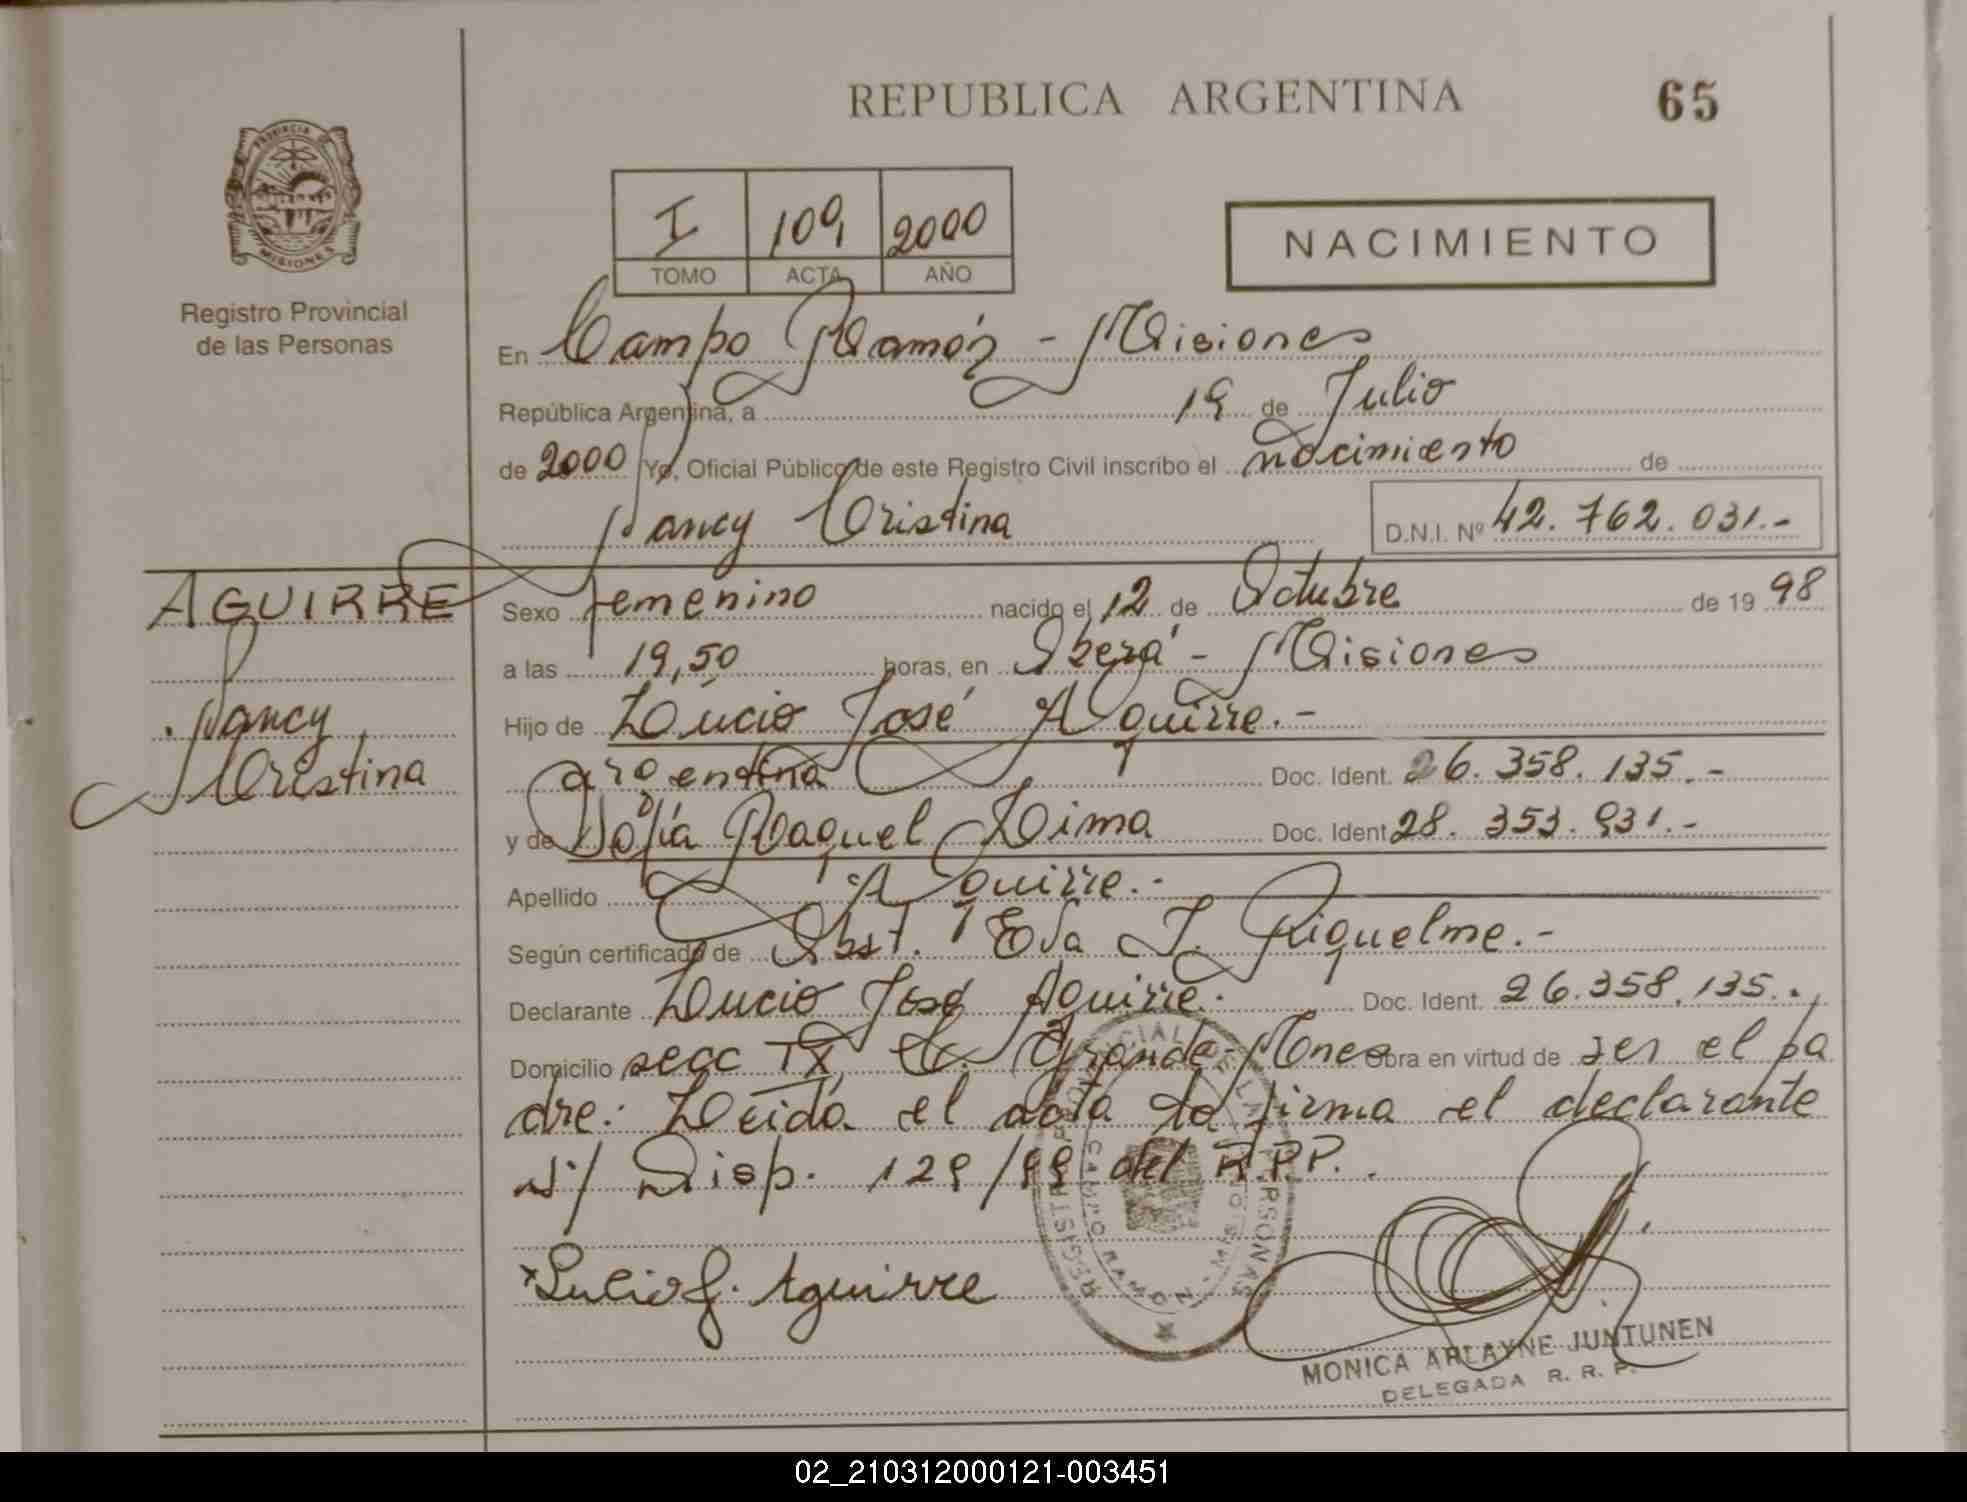 REPUBLICA ARGENTINA
65
PROVINCIA DE
MISIONES
Registro Provincial
de las Personas
I 109 2000
TOMO ACTA AÑO
NACIMIENTO
En Campo Ramón - Misiones
República Argentina, a 19 de Julio
de 2000 Yo, Oficial Público de este Registro Civil inscribo el nacimiento de
Nancy Cristina D.N.I. Nº 42.762.031.-
AGUIRRE
Nancy
Cristina
Sexo femenino nacido el 12 de Octubre de 19 98
a las 19,50 horas, en Oberá - Misiones
Hijo de Lucio José Aguirre.-
argentina Doc. Ident. 26.358.135.-
y de Sofía Raquel Lima Doc. Ident 28.353.931.-
Apellido Aguirre.-
Según certificado de Obst. Eva J. Riquelme.-
Declarante Lucio José Aguirre. Doc. Ident. 26.358.135.-
Domicilio secc TX, C. Grande-Mnes obra en virtud de ser el pa
dre: Leída el acta la firma el declarante
s/ Disp. 129/99 del R.P.P.
Lucio J. Aguirre
REGISTRO PROVINCIAL DE LAS PERSONAS
CAMPO RAMON - MISIONES
MONICA ARLAYNE JUNTUNEN
DELEGADA R. R. P.
02_210312000121-003451